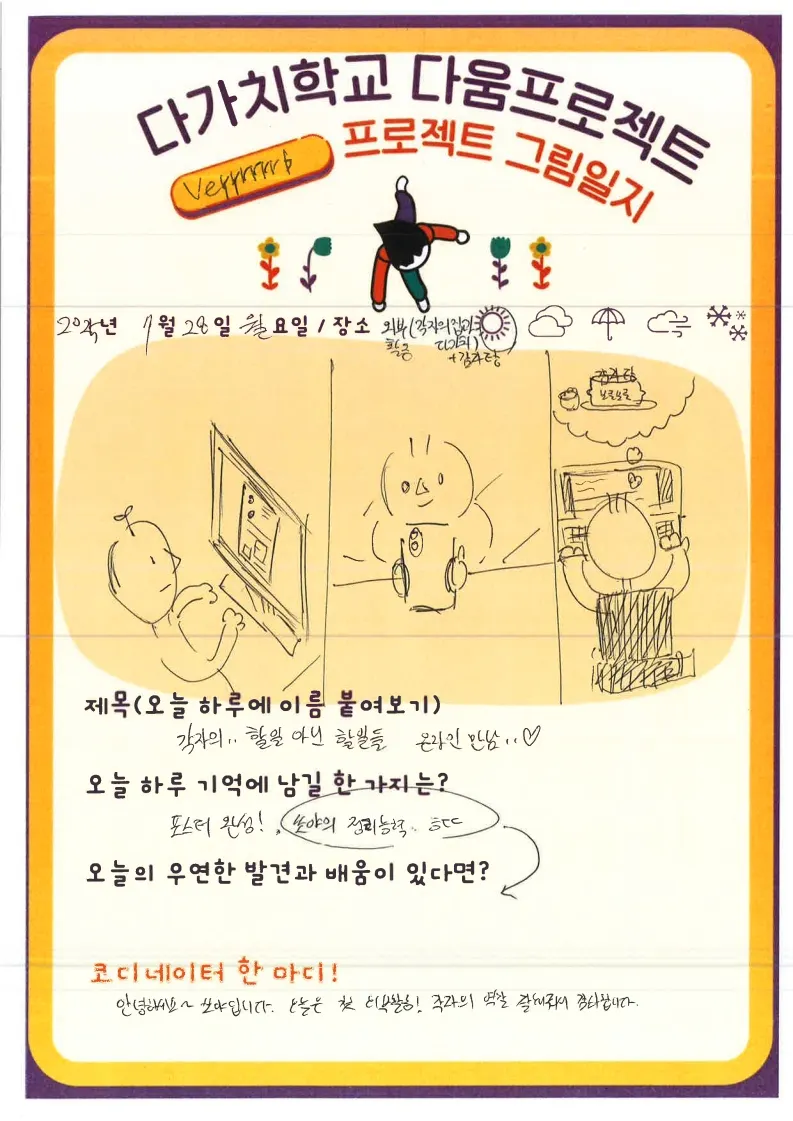 다가치학교 다움프로젝트
프로젝트 그림일지
년 월 28일 월요일 / 장소 외부(각자의 집과
+감자탕
감자탕
보글보글
제목(오늘 하루에 이름 붙여보기)
각자의.. 할일 아닌 할일들 온라인 만남..♡
오늘 하루 기억에 남길 한 가지는?
포스터 완성! 쏘야의 정리능력. ㅎㄷㄷ
오늘의 우연한 발견과 배움이 있다면?
코디네이터 한 마디!
안녕하세요~ 쏘야입니다. 오늘은 첫 외부활동! 각자의 역할 잘해줘서 감사합니다.